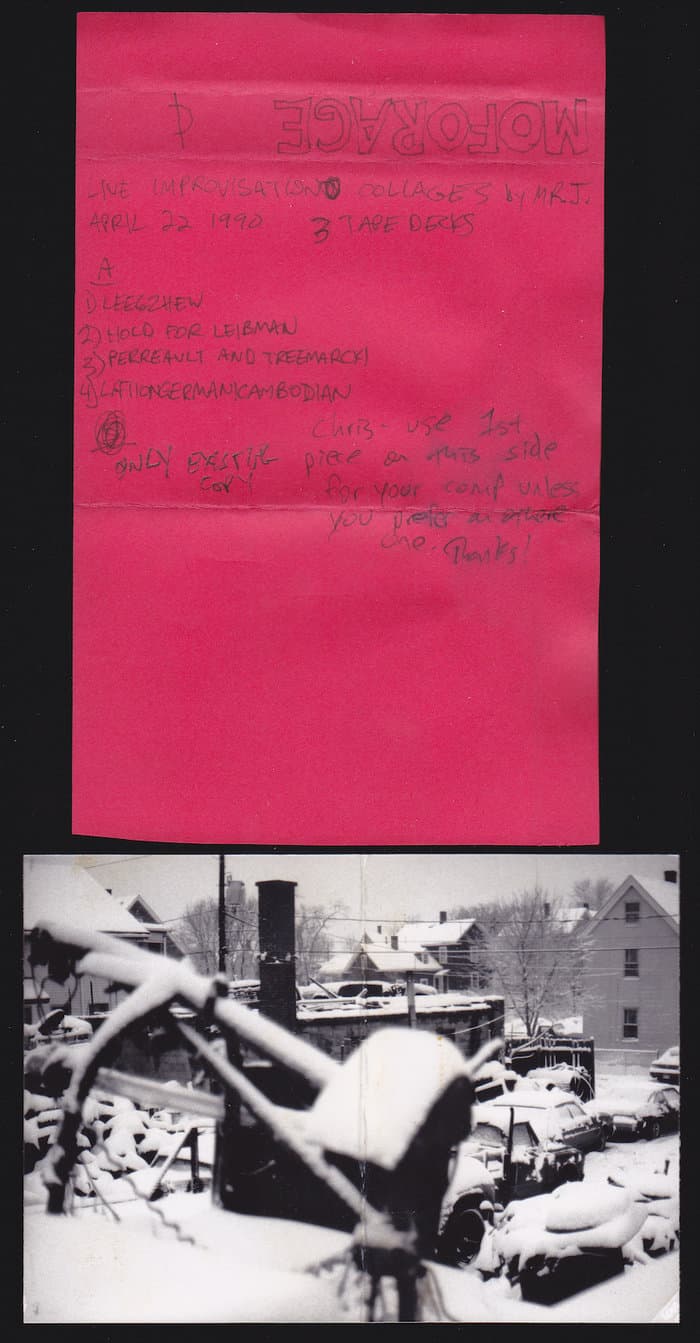 MOFORAGE
LIVE IMPROVISATION COLLAGES by MR. J.
APRIL 22 1990 3 TAPE DECKS
A
1) LEEGZHEW
2) HOLD FOR LEIBMAN
3) PERREAULT AND TREEMARCKI
4) LATIONGERMANICAMBODIAN
ONLY EXISTING
COPY
Chris - use 1st
piece on this side
for your comp unless
you prefer another
one. Thanks!